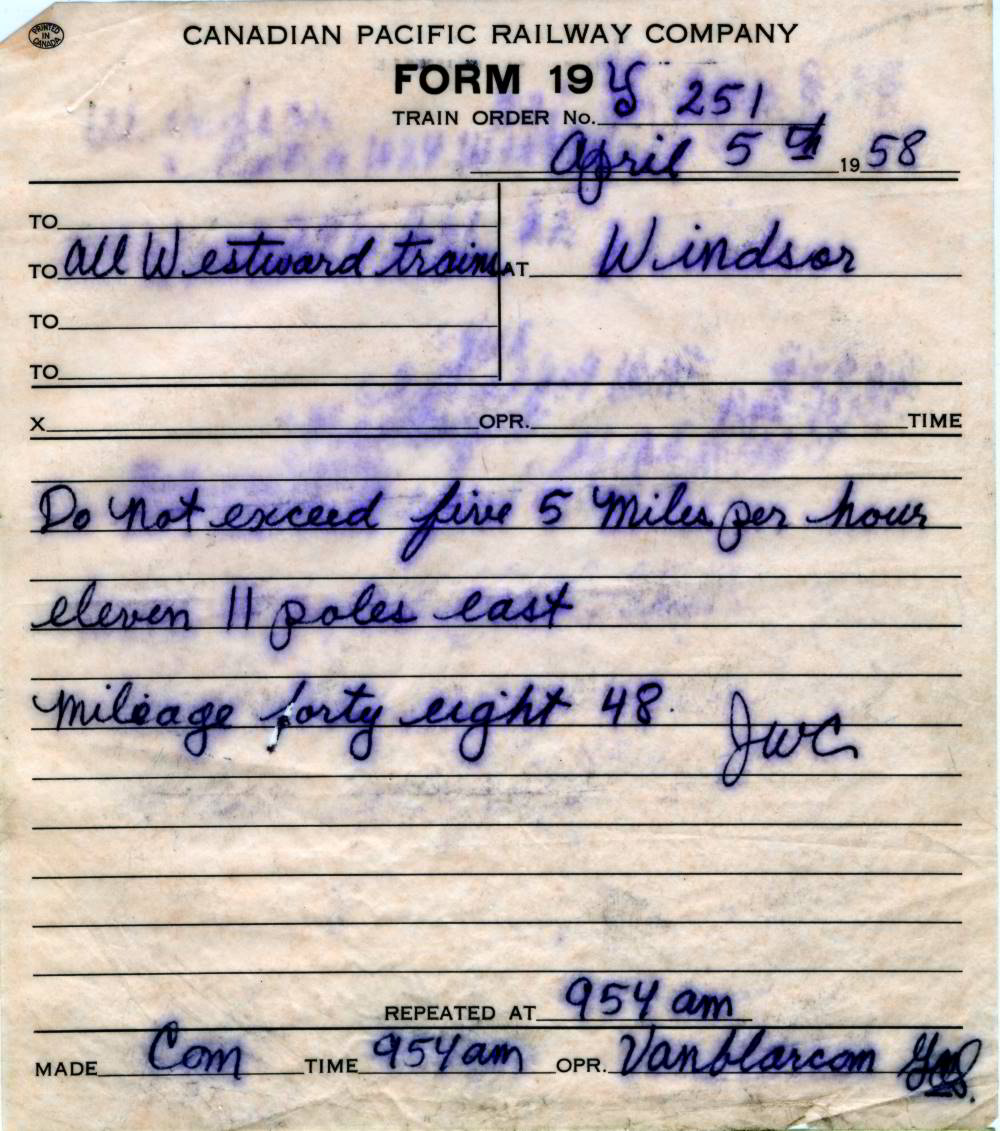 PRINTED IN CANADA
CANADIAN PACIFIC RAILWAY COMPANY
FORM 19 Y
TRAIN ORDER No. 251
April 5th 1958
TO
TO all Westward trains AT Windsor
TO
TO
X OPR. TIME
Do not exceed five 5 Miles per hour
eleven 11 poles east
mileage forty eight 48.
JWC
REPEATED AT 954 am
MADE Com TIME 954 am OPR. Vanblarcom